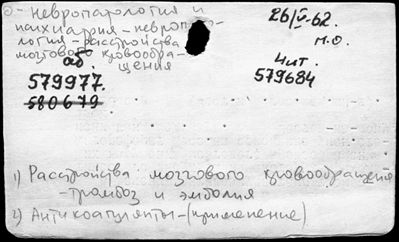 5 - невропатология и
психиатрия - невропато-
логия - расстройства
мозгового кровообра-
щения
26/V-62.
м.о.
аб.
579977.
580679
Чит.
579684
1) Расстройства мозгового кровообращения
- тромбоз и эмболия
2) Антикоагулянты - (применение)